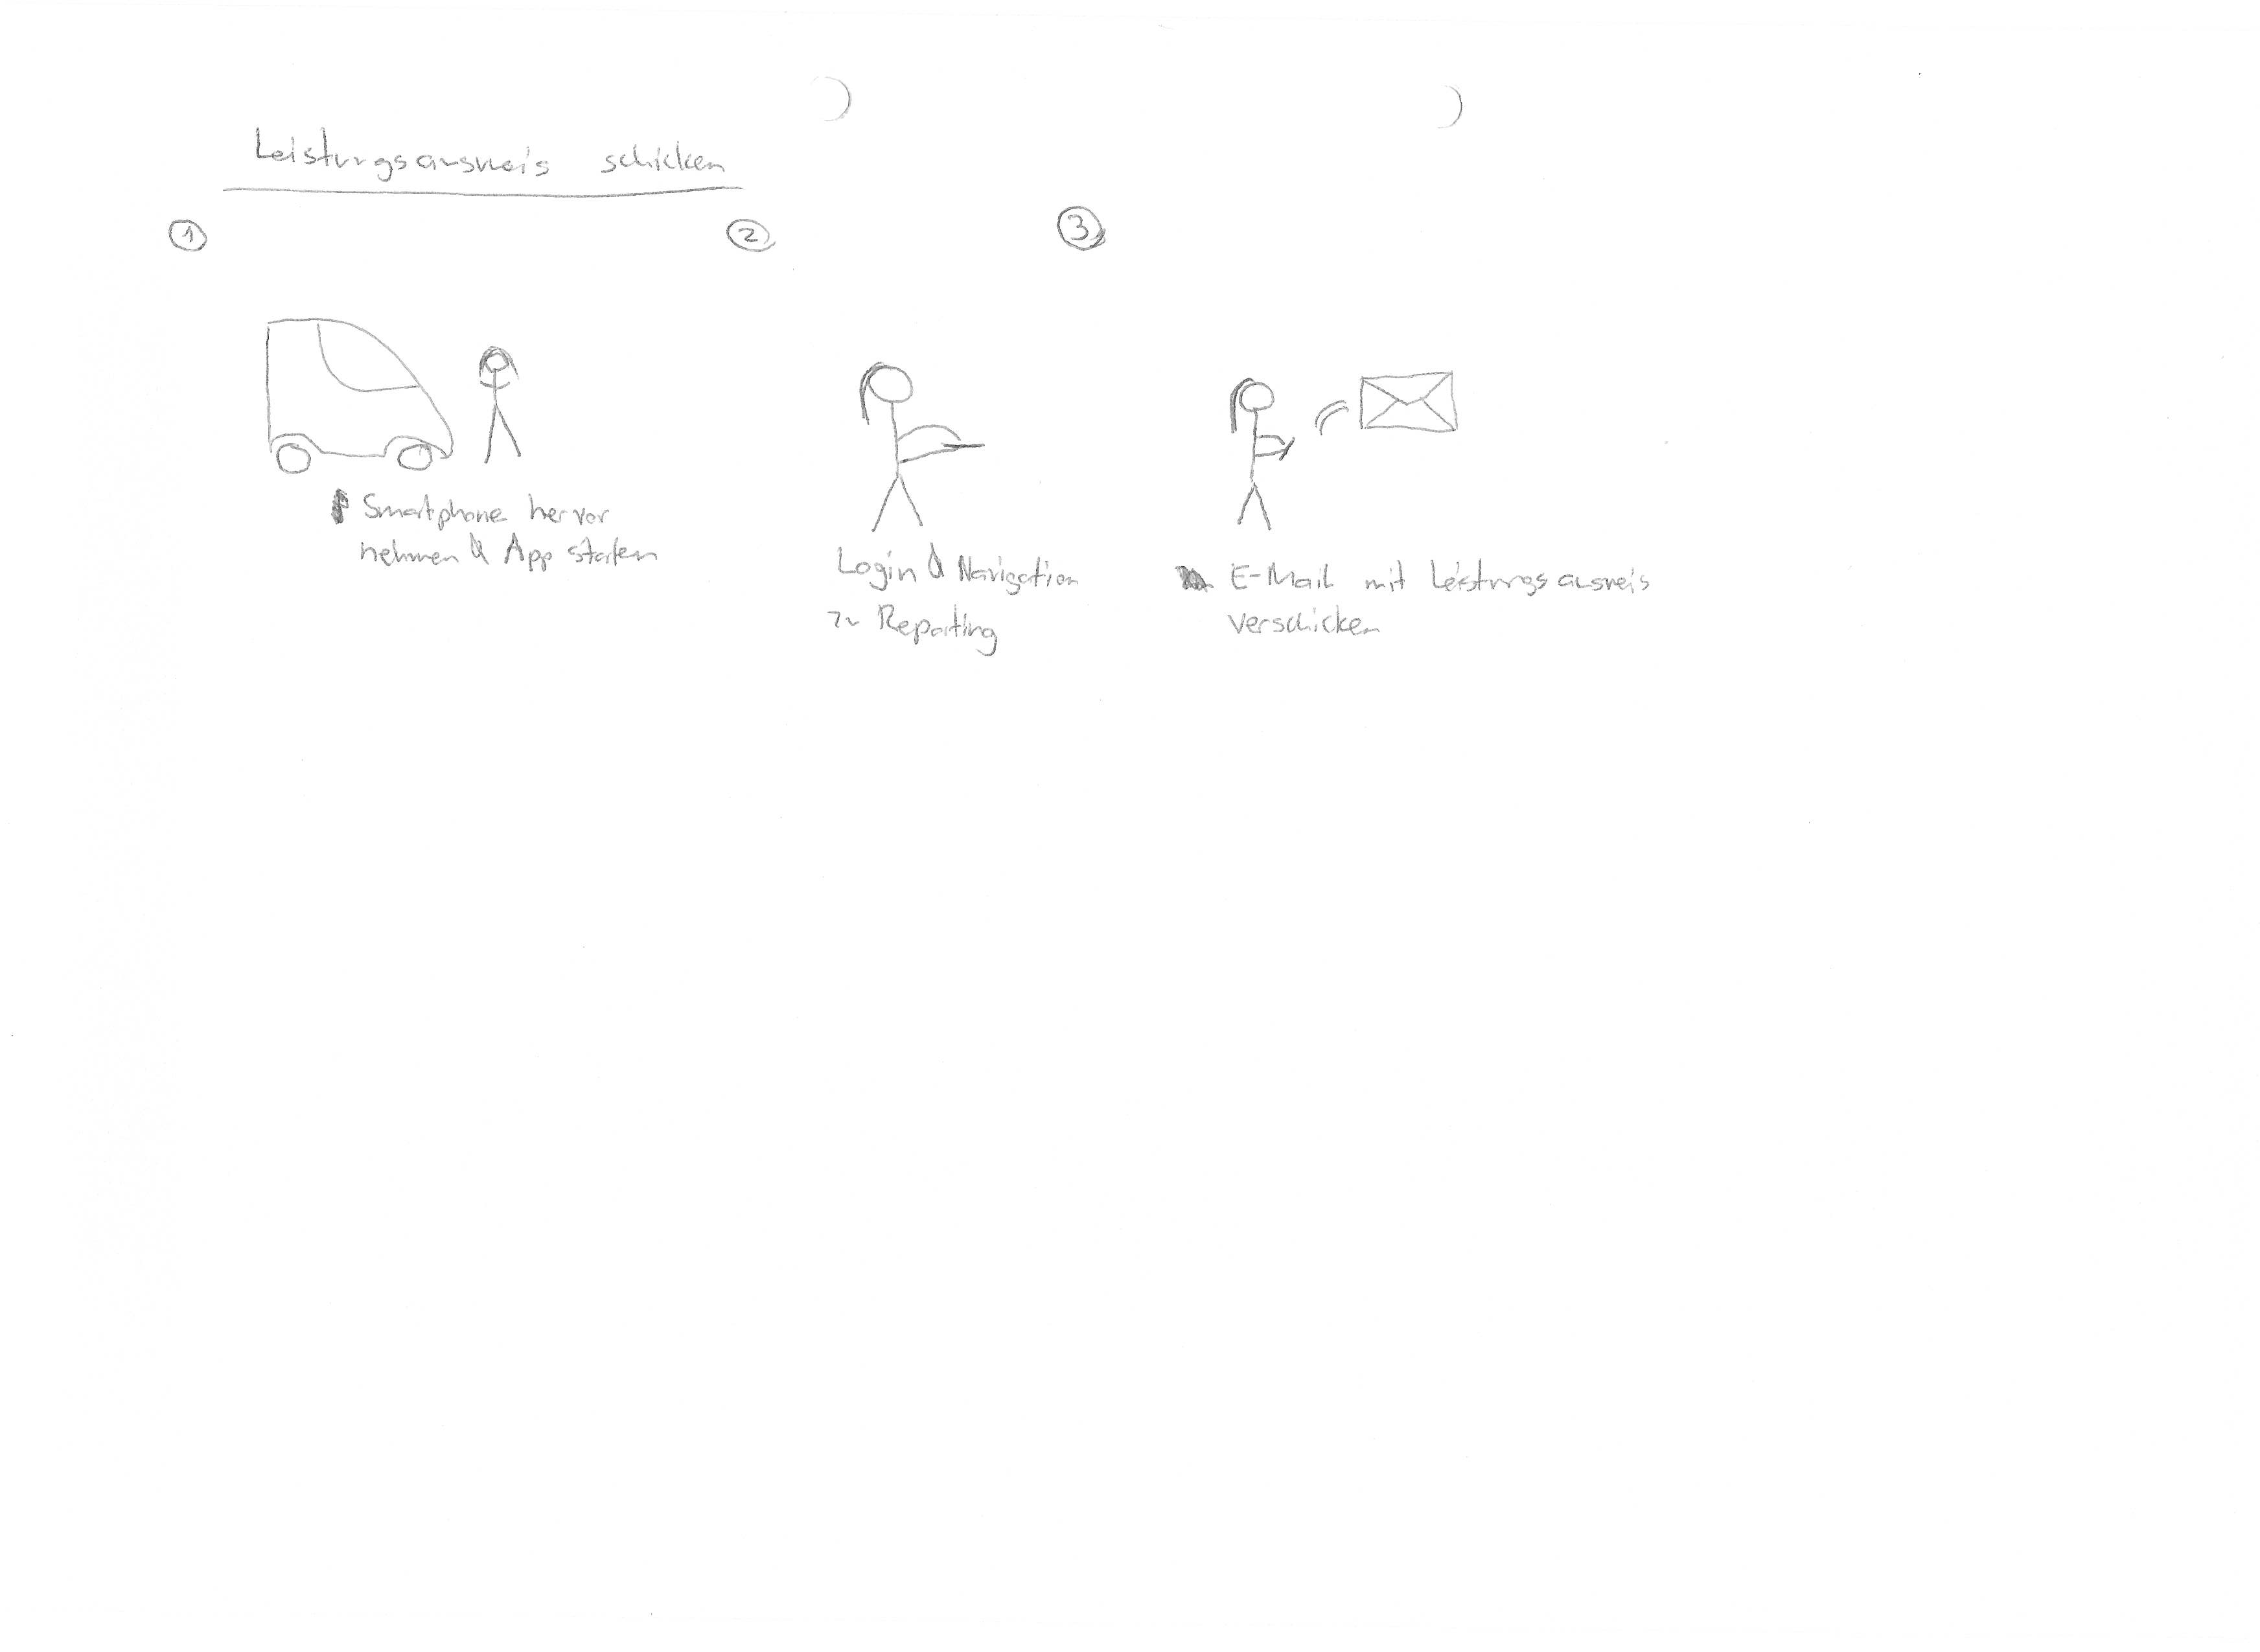 Leistungsausweis schicken
1
2
3
Smartphone hervor
nehmen & App starten
Login & Navigation
zu Reporting
E-Mail mit Leistungsausweis
verschicken